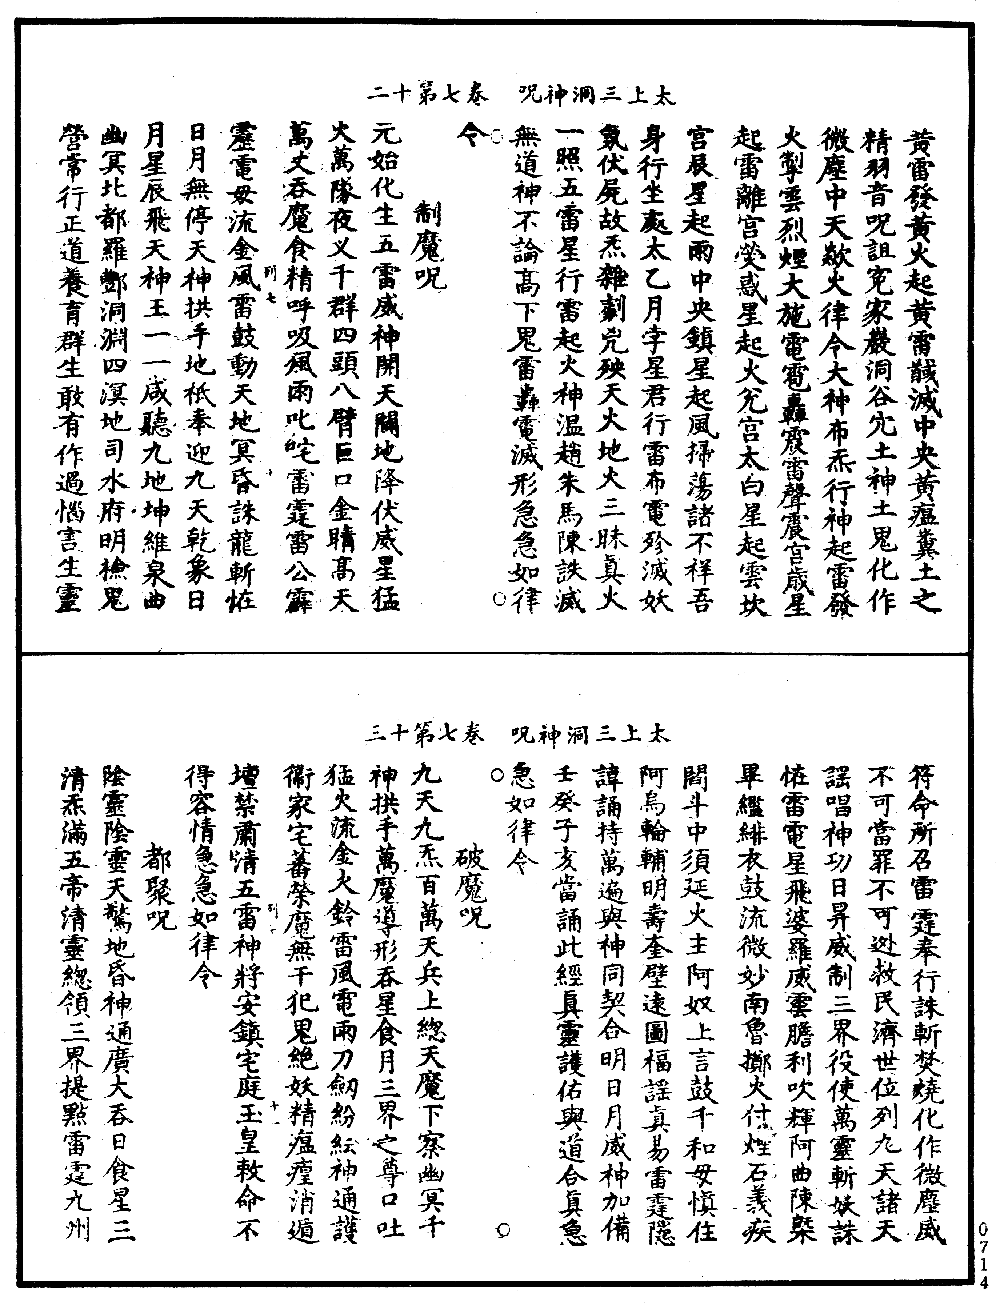 太上三洞神呪　卷七第十二
黃雷發黃火起黃雷馘滅中央黃瘟糞土之
精羽音呪詛寃家巖洞谷穴土神土鬼化作
微塵中天歘火律令大神布炁行神起雷發
火掣雲烈煙大施電雹轟霞雷聲震宮歲星
起雷離宮熒惑星起火兊宮太白星起雲坎
宮辰星起雨中央鎮星起風掃蕩諸不祥吾
身行坐處太乙月孛星君行雷布電殄滅妖
氣伏屍故炁雜劾兇殃天火地火三昧真火
一照五雷星行雷起火神温趙朱馬陳誅滅
無道神不論高下鬼雷轟電滅形急急如律
令
制魔呪
元始化生五雷威神開天關地降伏威星猛
火萬隊夜叉千群四頭八臂巨口金睛高天
萬丈吞魔食精呼吸瘋雨叱咤雷霆雷公霹
靂電母流金風雷鼓動天地冥昏誅龍斬恠
日月無停天神拱手地祇奉迎九天乾象日
月星辰飛天神王一一咸聽九地坤維泉曲
幽冥北都羅酆洞淵四溟地司水府明檢鬼
營常行正道養育群生敢有作過惱害生靈
太上三洞神呪　卷七第十三
符命所召雷霆奉行誅斬焚燒化作微塵威
不可當罪不可逊救民濟世位列九天諸天
謡唱神功日昇威制三界役使萬靈斬妖誅
恠雷電星飛婆羅威霎膽利吹輝阿曲陳槩
畢鑑緋衣鼓流微妙南魯擲火付煙石義疾
閻斗中須延火主阿奴上言鼓千和毋慎住
阿烏輪輔明壽奎壁遠圖福謡真易雷霆隱
諱誦持萬遍與神同契合明日月威神加備
壬癸子亥當誦此經真靈護佑與道合真急
急如律令
破魔呪
九天九炁百萬天兵上總天魔下察幽冥千
神拱手萬魔導形吞星食月三界之尊口吐
猛火流金火鈴雷風電雨刀劒紛紜神通護
衞家宅蕃榮魔無干犯鬼絶妖精瘟㾮消遁
壇禁肅清五雷神將安鎮宅庭玉皇敕命不
得容情急急如律令
都聚呪
陰靈陰靈天驚地昏神通廣大吞日食星三
清炁滿五帝清靈總領三界提點雷霆九州
0714